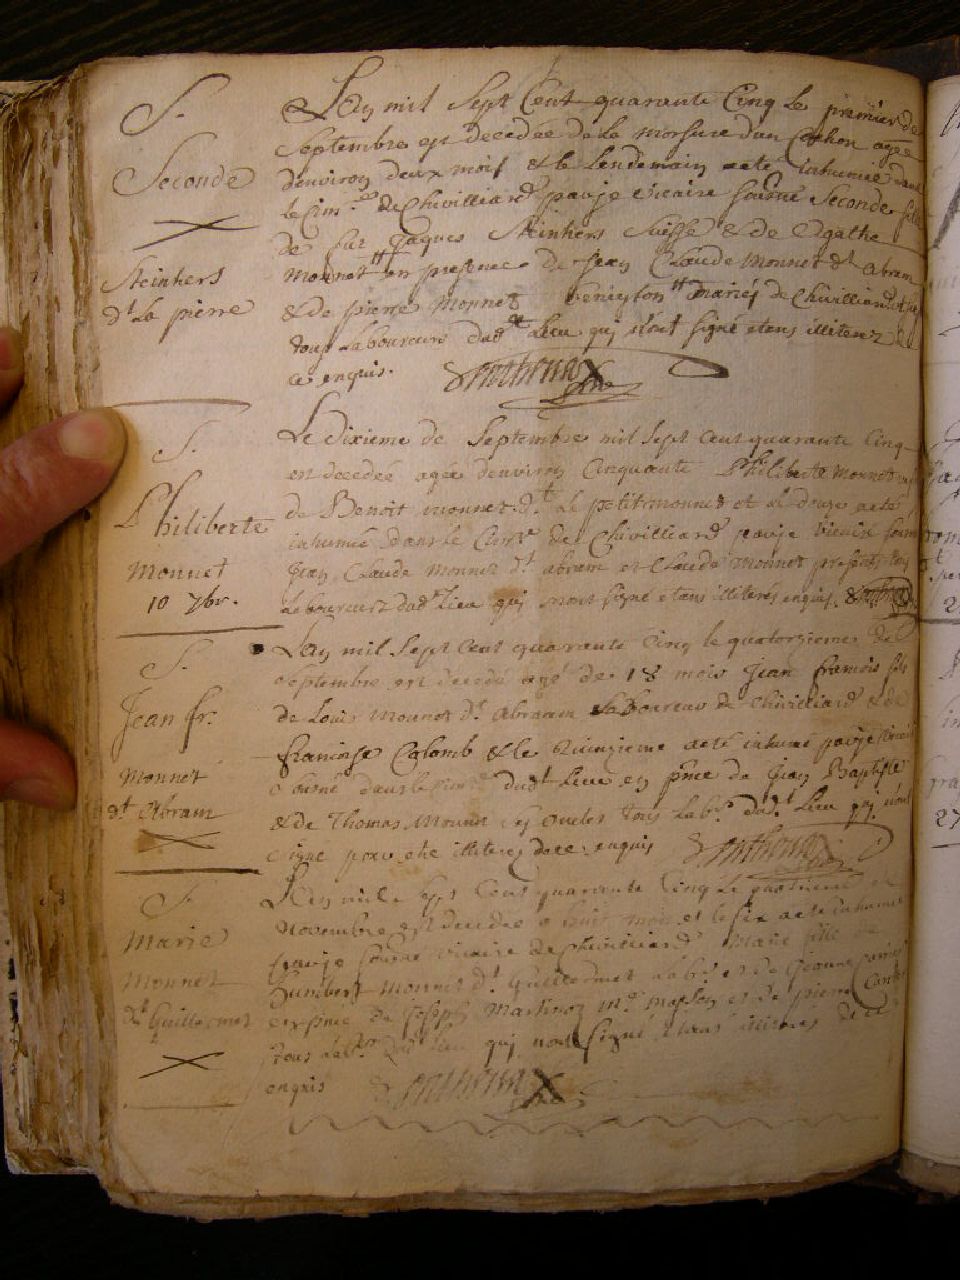 S.
Seconde
Steinhers
d.t La pierre
L'an mil Sept Cent quarante Cinq le premier de
Septembre est decedée de la morsure d'un Cochon agée
d'environ deux mois & le lendemain a eté inhumée dans
le Cim.re de Chivilliard par je vicaire sousné Seconde fille
de fut Jaques Steinhers Suisse & de Agathe
Monnet en presence de Jean Claude Monnet d.t Abram
& de pierre Monnet de Chivilliard
tous Laboureurs dud.t Lieu qui n'ont signé etans illiterez
ce enquis.
S.
Philiberte
Monnet
10 7bre.
Le dixieme de Septembre mil sept cent quarante Cinq
est decedée agée d'environ Cinquante Philiberte Monnet
de Benoit Monnet d.t le petit monnet et le onze a eté
inhumée dans le Cim.re de Chivilliard par je vicaire sousné
Jean Claude Monnet d.t Abram et Claude Monnet presents tous
Laboureurs dud.t Lieu qui n'ont signé etans illiterés enquis.
S.
Jean fr.
Monnet
d.t Abram
L'an mil Sept Cent quarante Cinq le quatorzieme de
Septembre est decedé agé de 18 mois Jean francois fils
de Louis Monnet d.t Abram Laboureur de Chivilliard & de
francoise Colomb & le Quinzieme a eté inhumé par je vicaire
sousné dans le Cim.re dud.t Lieu en p.nce de Jean Baptiste
& de Thomas Monnet ses oncles tous Lab.rs dud.t Lieu qui n'ont
signé pour etre illiterez de ce enquis
S.
Marie
Monnet
d.t Guillermet
L'an mile sept Cent quarante Cinq le quatrieme de
Novembre est decedée a huit mois et le six a eté inhumée
par je sousné vicaire de Chivilliard Marie fille de
humbert Monnet d.t Guillermet Lab.r et de
en p.nce de Joseph Martinoz m.e masson et de pierre
tous Lab.rs dud.t lieu qui n'ont signé etans illiteres de ce
enquis